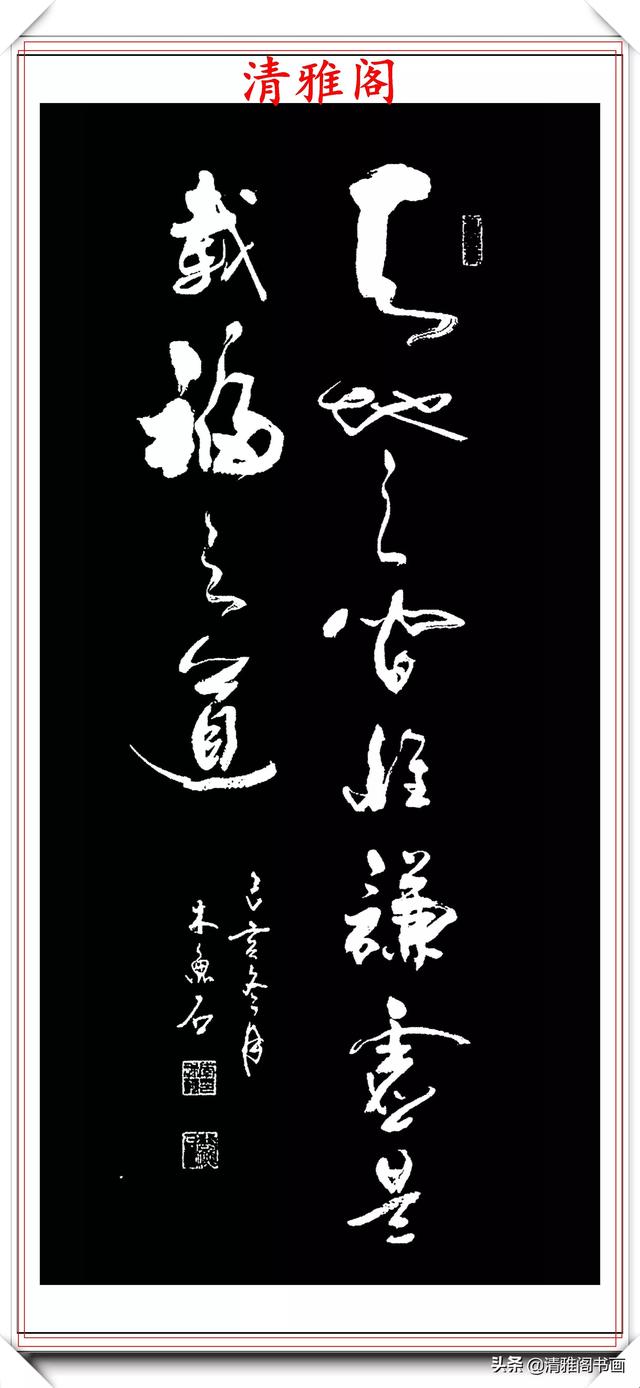 清雅阁
天地之间唯谦虚是
载福之道
己亥冬月
朱鱼石
头条 @清雅阁书画